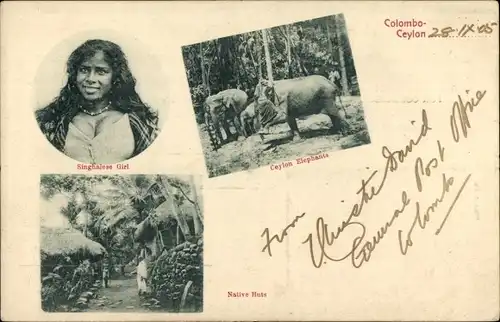 Colombo-
Ceylon 28.IX.05
Singhalese Girl
Ceylon Elephants
Native Huts
From
David
General Post Office
Colombo